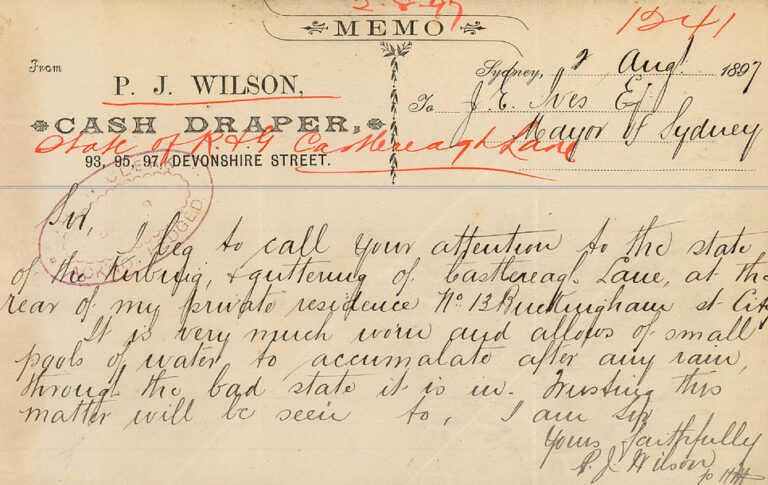 2-8-97
1241
MEMO
From
P. J. WILSON,
CASH DRAPER,
State of K & G Castlereagh Lane
93, 95, 97, DEVONSHIRE STREET.
Sydney, 2 Augt 1897
To J. E. Ives Esq
Mayor of Sydney
Sir,
I beg to call your attention to the state
of the kirbing, & guttering of Castlereagh Lane, at the
rear of my private residence No. 13 Buckingham st City
It is very much worn and allows of small
pools of water to accumalate after any rain,
through the bad state it is in. Trusting this
matter will be seen to, I am Sir
Yours faithfully
P. J. Wilson
p